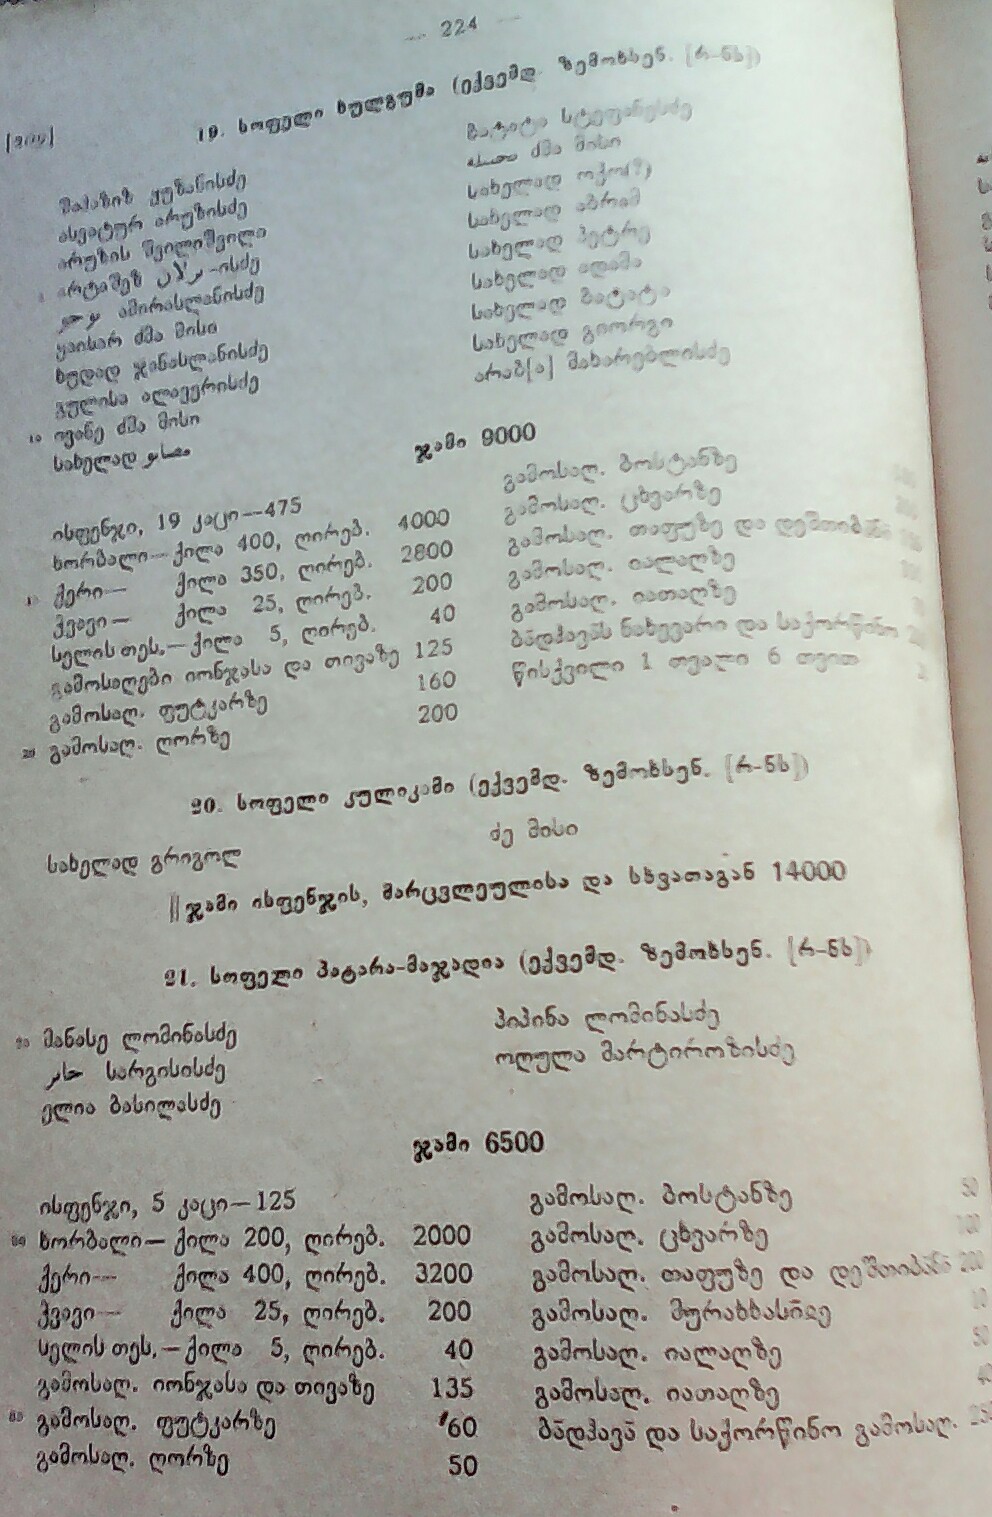 — 224 —
19. სოფელი ხულგუმა (ექვემდ. ზემოხსენ. [რ-ნს])
შაჰაზიზ
ასვატურ არუზისძე
არუზის შვილიშვილი
არტაშეზ -ისძე
ამირასლანისძე
ყაისარ ძმა მისი
ხუდად ჯანასლანისძე
გულისა ალავერისძე
10 ივანე ძმა მისი
სახელად
ბატატა სტეფანესძე
ძმა მისი
სახელად ოქო(?)
სახელად აბრამ
სახელად პეტრე
სახელად ადამა
სახელად ბატატა
სახელად გიორგი
არაბ[ა] მახარებლისძე
ჯამი 9000
ისფენჯი, 19 კაცი—475
ხორბალი— ქილა 400, ღირებ. 4000
ქერი— ქილა 350, ღირებ. 2800
ჭვავი— ქილა 25, ღირებ. 200
სელის თეს.— ქილა 5, ღირებ. 40
გამოსაღები იონჯასა და თივაზე 125
გამოსაღ. ფუტკარზე 160
20 გამოსაღ. ღორზე 200
გამოსაღ. ბოსტანზე
გამოსაღ. ცხვარზე
გამოსაღ. თაფუზე და დეშთიბანი
გამოსაღ. იალაღზე
გამოსაღ. იათაღზე
ბადჰავას ნახევარი და საქორწინო
წისქვილი 1 თვალი 6 თვით
20. სოფელი კულიკამი (ექვემდ. ზემოხსენ. [რ-ნს])
სახელად გრიგოლ
ძე მისი
||ჯამი ისფენჯის, მარცვლეულისა და სხვათაგან 14000
21. სოფელი პატარა-მაჯადია (ექვემდ. ზემოხსენ. [რ-ნს])
მანასე ლომინასძე
სარგისისძე
ელია ბასილასძე
პიპინა ლომინასძე
ოღულა მარტიროზისძე
ჯამი 6500
ისფენჯი, 5 კაცი—125
ხორბალი— ქილა 200, ღირებ. 2000
ქერი— ქილა 400, ღირებ. 3200
ჭვავი— ქილა 25, ღირებ. 200
სელის თეს.— ქილა 5, ღირებ. 40
გამოსაღ. იონჯასა და თივაზე 135
გამოსაღ. ფუტკარზე 60
გამოსაღ. ღორზე 50
გამოსაღ. ბოსტანზე 50
გამოსაღ. ცხვარზე
გამოსაღ. თაფუზე და დეშთიბანი 200
გამოსაღ. მურახხასიიე
გამოსაღ. იალაღზე 50
გამოსაღ. იათაღზე
ბადჰავა და საქორწინო გამოსაღ.